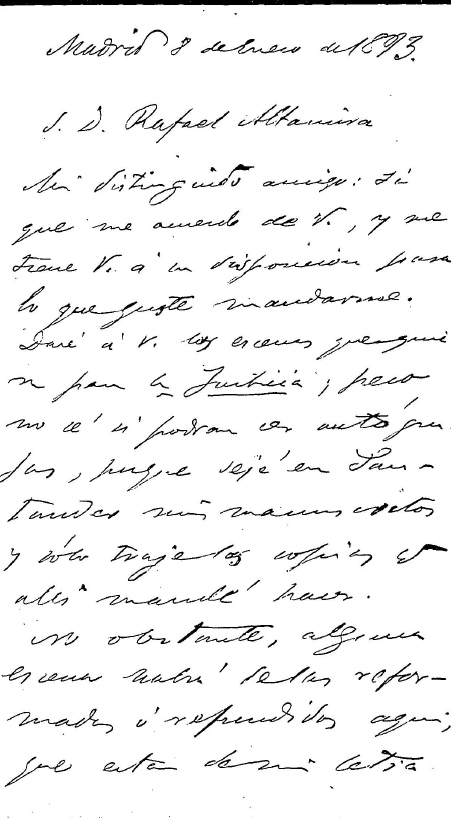 Madrid 8 de Enero de 1893.
S. D. Rafael Altamira
Mi distinguido amigo: sí
que me acuerdo de V., y me
tiene V. á su disposición para
lo que guste mandarme.
Daré á V. las escenas que quie
ra para la Justicia; pero
no sé si podran ser autógra
fas, porque dejé en San-
tander mis manuscritos
y sólo traje las copias q
allí mandé hacer.
No obstante, alguna
escena habrá de las refor-
madas ó refundidas aquí,
que estan de mi letra